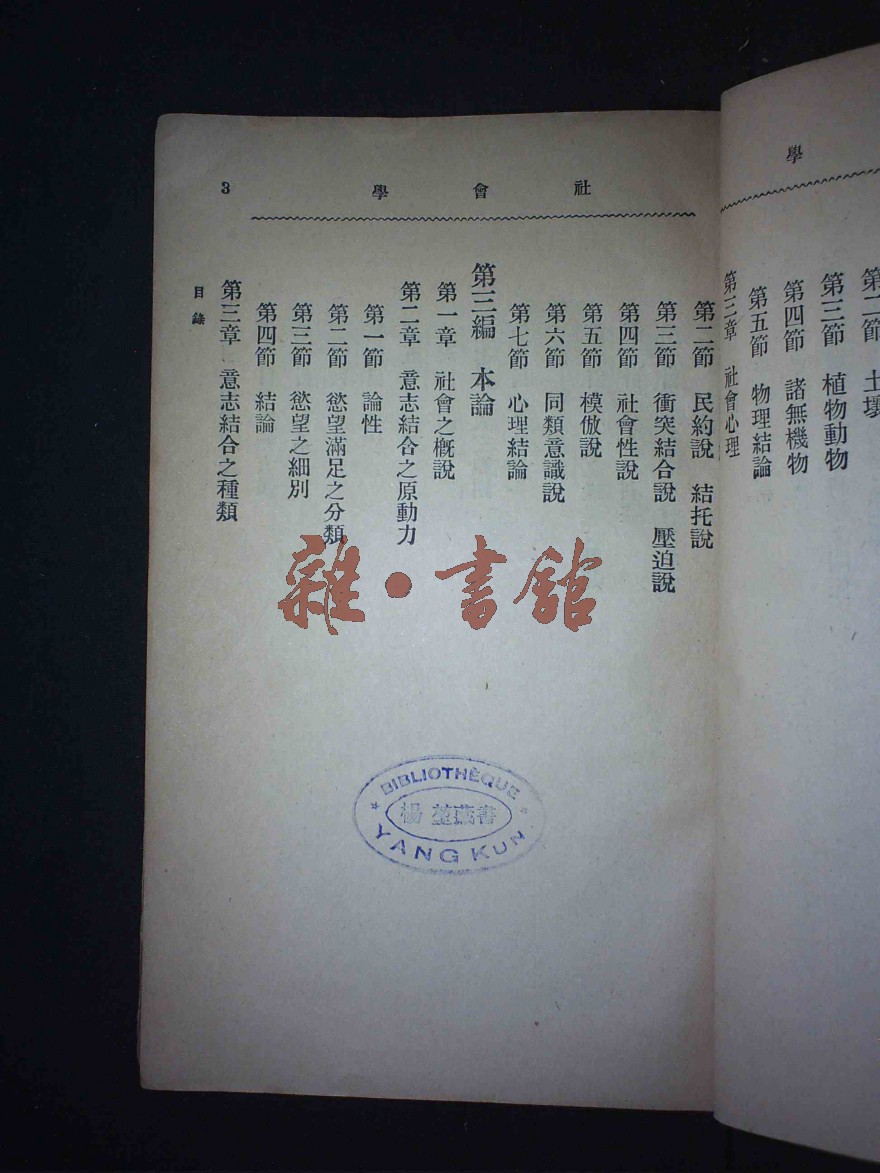 學
第二節 土壤
第三節 植物動物
第四節 諸無機物
第五節 物理結論
第三章 社會心理
社會學
3
第二節 民約說 結托說
第三節 衝突結合說 壓迫說
第四節 社會性說
第五節 模倣說
第六節 同類意識說
第七節 心理結論
第三編 本論
第一章 社會之概說
第二章 意志結合之原動力
第一節 論性
第二節 慾望滿足之分類
第三節 慾望之細別
第四節 結論
第三章 意志結合之種類
目錄
雜·書館
BIBLIOTHÈQUE
楊堃藏書
YANG KUN